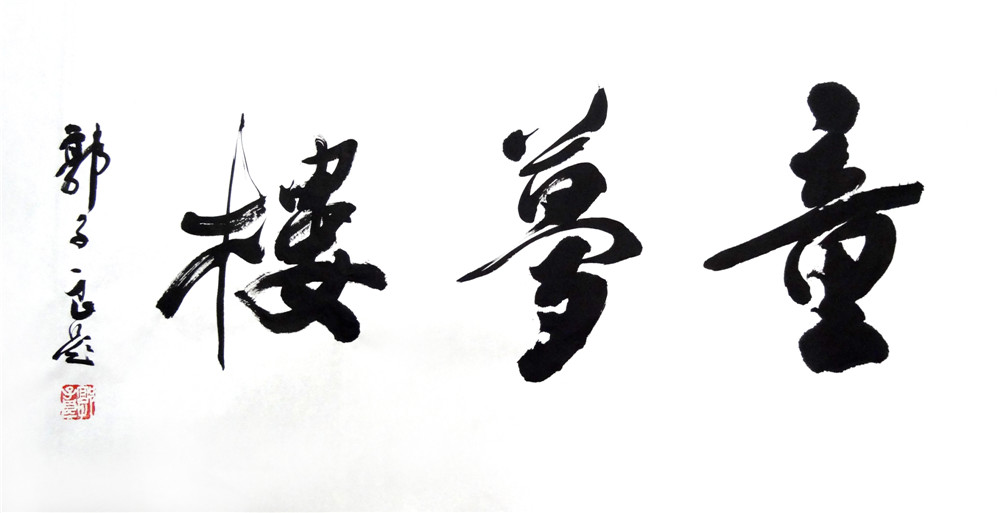 童夢樓
郭子良題